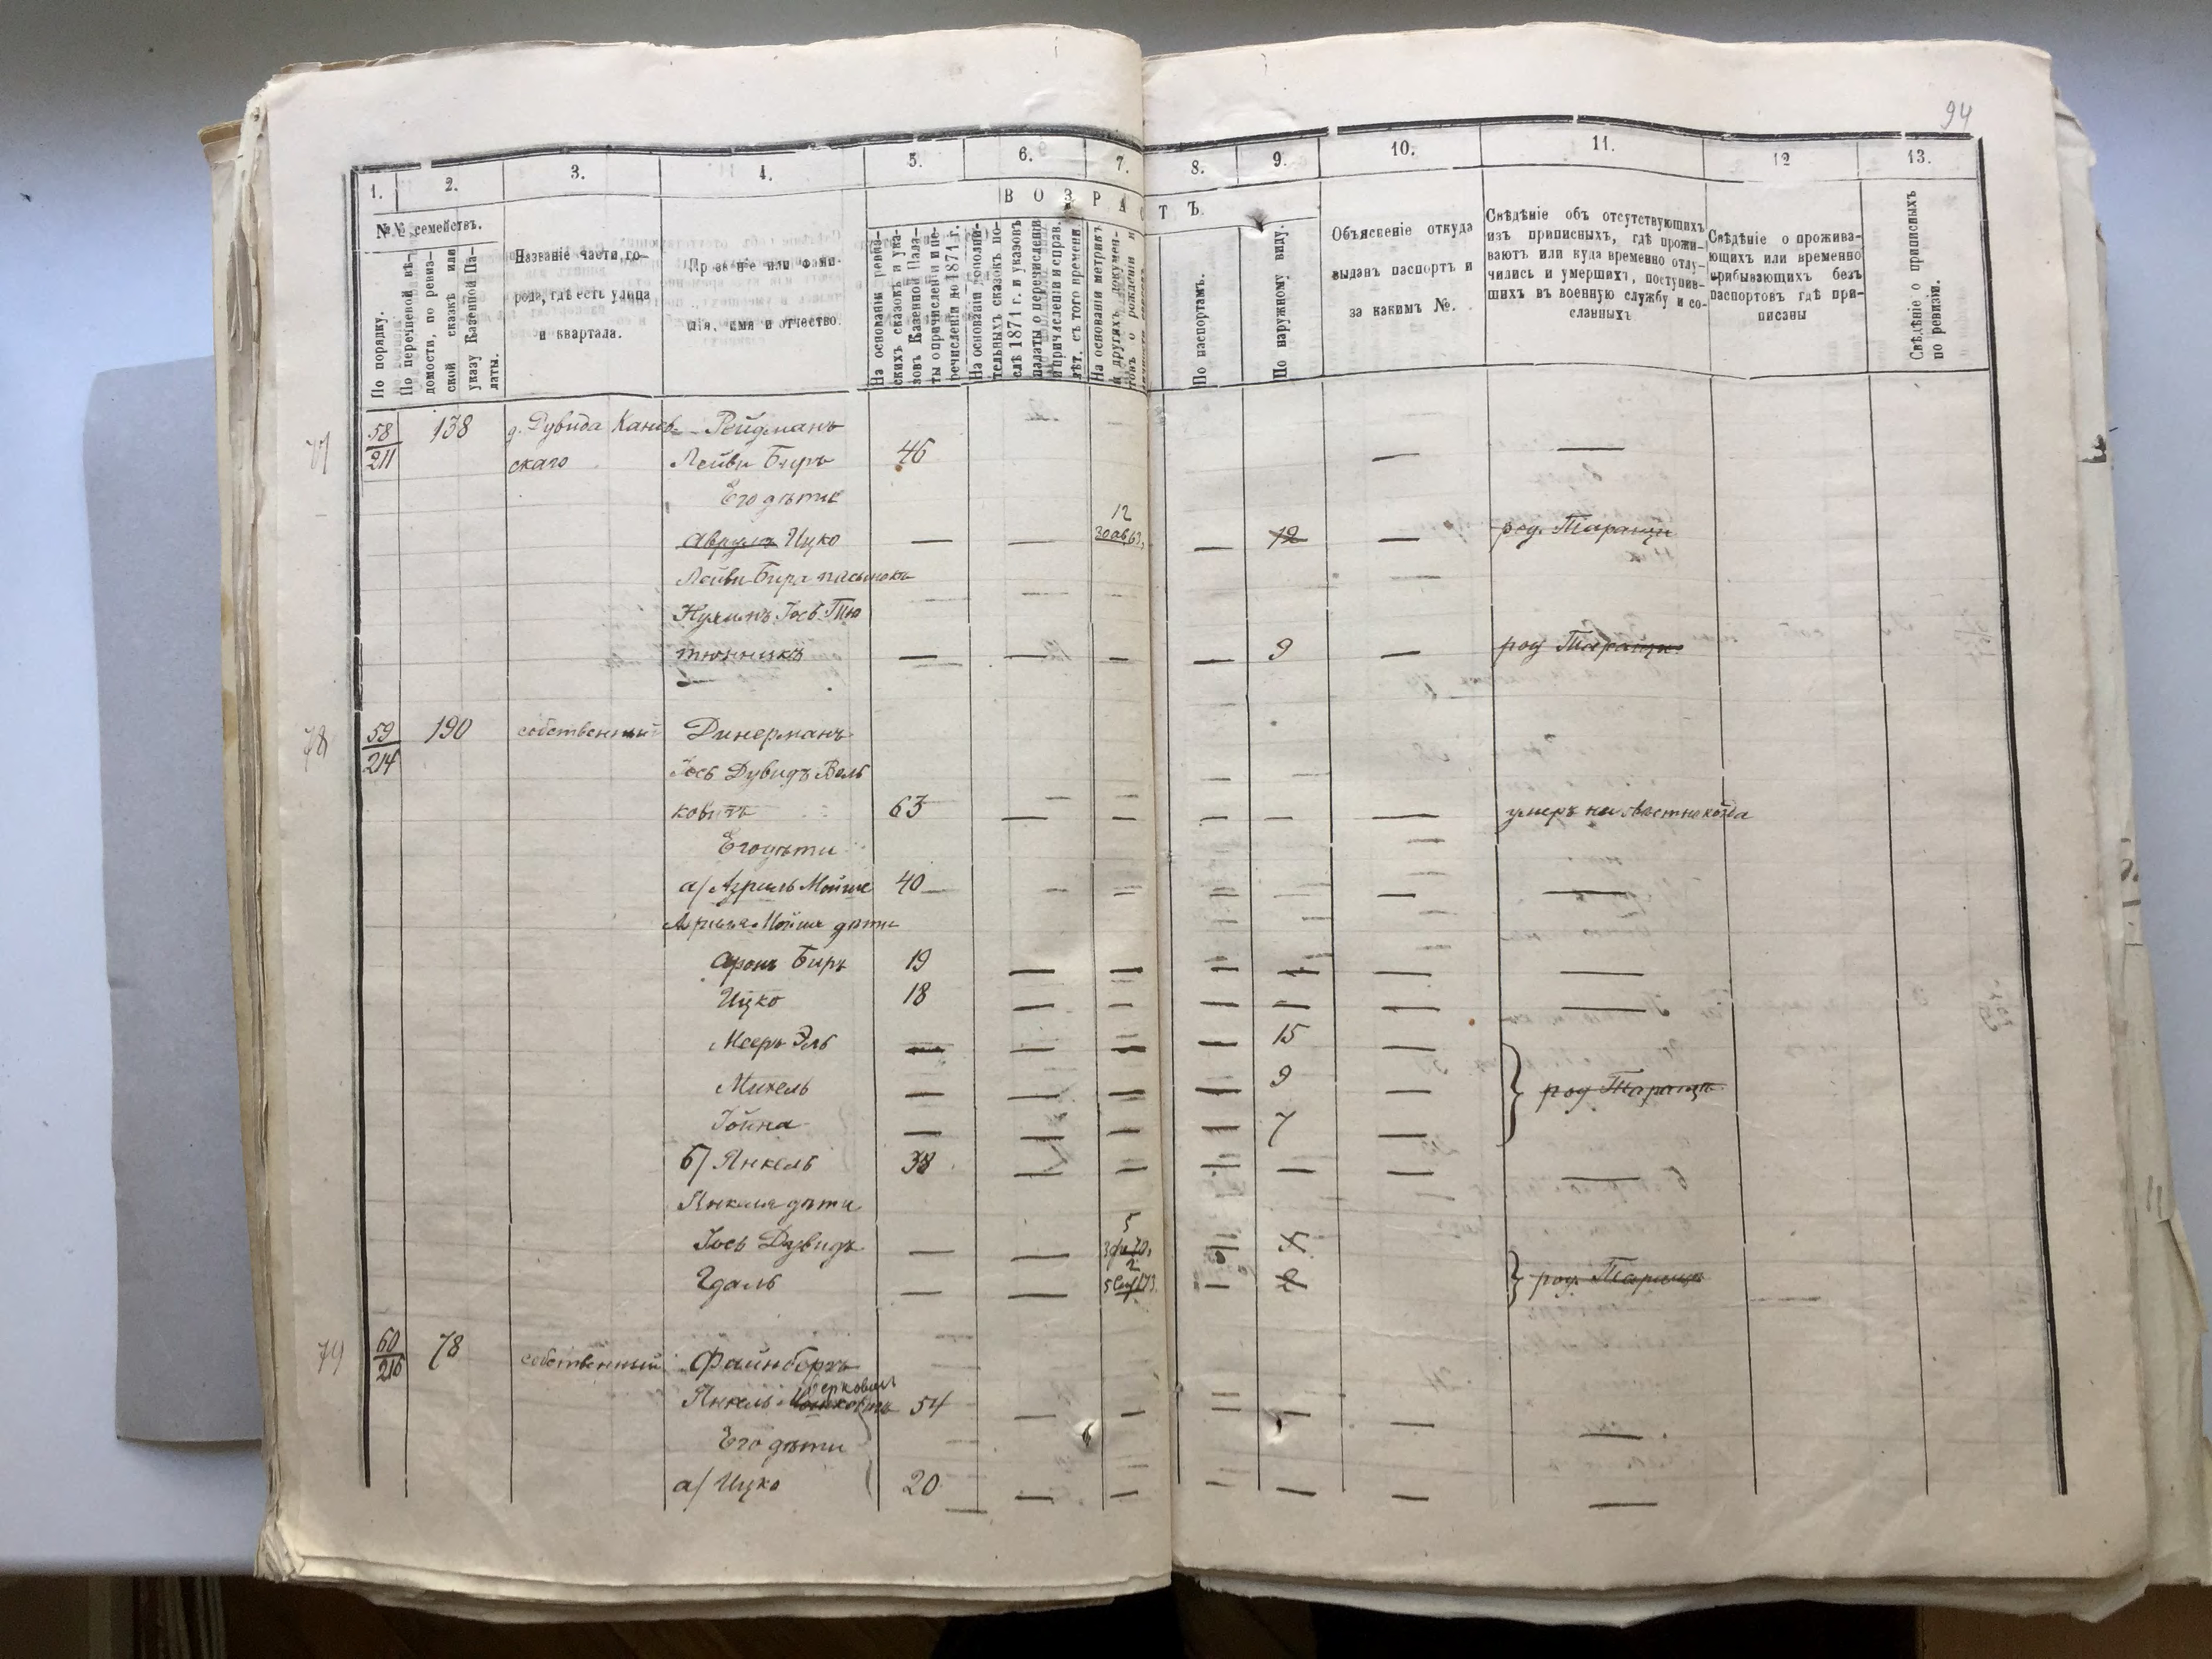 94
1. 2. 3. 4. 5. 6. 7. 8. 9. 10. 11. 12 13.
№№ семействъ.
По порядку.
По перечневой вѣ-
домости, по ревиз-
ской сказкѣ или
указу Казенной Па-
латы.
Названіе части, го-
рода, гдѣ есть улица
и квартала.
Прозваніе или фами-
лія, имя и отчество.
ВОЗРАСТЪ.
На основаніи ревиз-
скихъ сказокъ и ука-
зовъ Казенной Пала-
ты о причисленіи и пе-
речисленіи до 1871 г.
На основаніи дополни-
тельныхъ сказокъ по-
слѣ 1871 г. и указовъ
палаты о перечисленіи
и причисленіи и справ.
лѣт. съ того времени.
На основаніи метрикъ
и другихъ докумен-
товъ о рожденіи и
По паспортамъ.
По наружному виду.
Объясненіе откуда
выданъ паспортъ и
за какимъ №.
Свѣдѣніе объ отсутствующихъ
изъ приписныхъ, гдѣ прожи-
ваютъ или куда временно отлу-
чились и умершихъ, поступив-
шихъ въ военную службу и со-
сланныхъ
Свѣдѣніе о прожива-
ющихъ или временно
прибывающихъ безъ
паспортовъ гдѣ при-
писаны
Свѣдѣніе о приписныхъ
по ревизіи.
77 58 138 д. Дувида Канев- Рейдманъ
211 скаго Лейви Беръ 46 — —
Его дѣти
12
Аврумъ Ицко — — 30 ав 63 — 12 — род. Тараща
Лейви Бера пасынокъ
Нухимъ Іось Тю
тюнникъ — — — — 9 — род Тараща
78 59 190 собственный Динерманъ
214 Іось Дувидъ Воль
ковичъ 63 — — — — — умеръ неизвѣстно когда
Его дѣти
а/ Азриль Мойше 40 — —
Азриля Мойше дѣти
Аронъ Беръ 19 — — — — — —
Ицко 18 — — — — — —
Мееръ Эль — — — — 15 —
Михель — — — — 9 — род Тараща
Іойна — — — — 7 —
б/ Янкель 38 — — — — — —
Янкеля дѣти
5
Іось Дувидъ — — 3 фе 70 — 5
2
Гдаль — — — 2 род. Тараща
79 60 78 собственный Файнбергъ
216 Берковичъ
Янкель Мошковичъ 54 — — — — — —
Его дѣти
а/ Ицко 20 — — — — — —